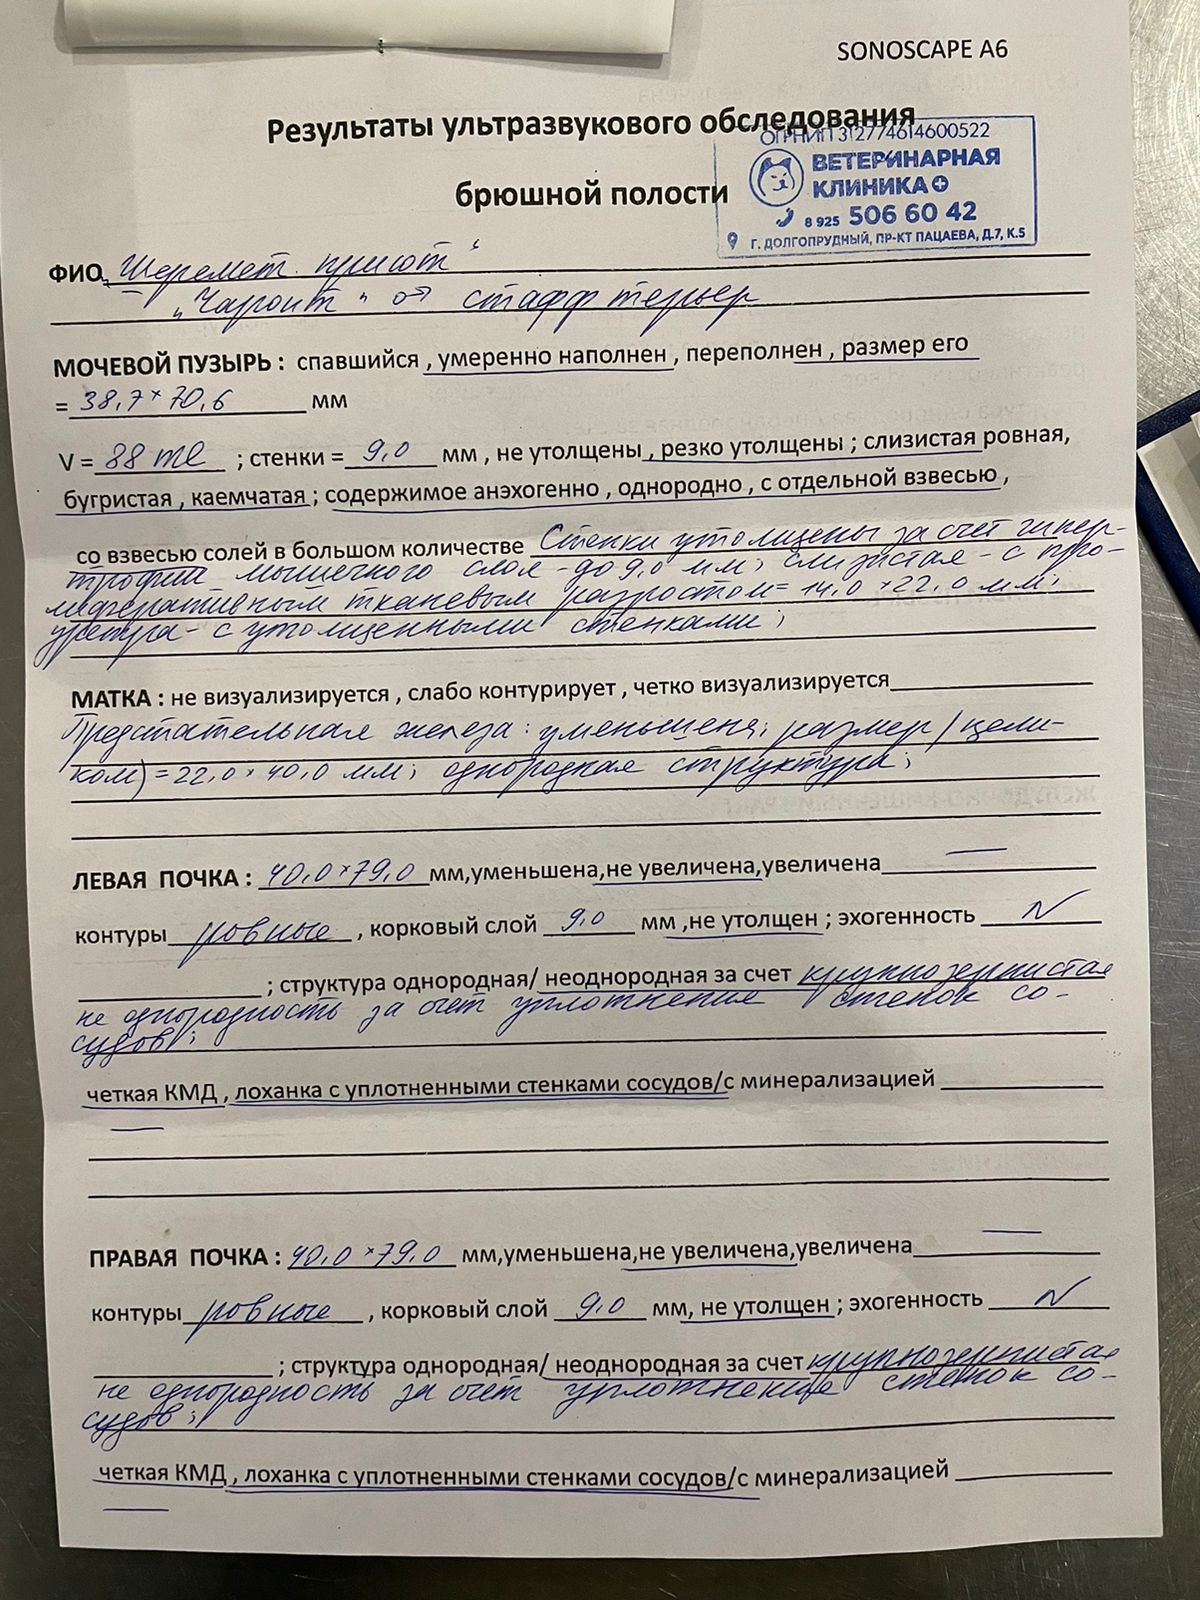 SONOSCAPE A6
Результаты ультразвукового обследования
ОГРНИП 312774614600522
ВЕТЕРИНАРНАЯ
КЛИНИКА
брюшной полости
8 925 506 60 42
Г. ДОЛГОПРУДНЫЙ, ПР-КТ ПАЦАЕВА, Д.7, К.5
ФИО Шеремет. приют
"Чароит" ♂ стафф терьер
МОЧЕВОЙ ПУЗЫРЬ : спавшийся , умеренно наполнен , переполнен , размер его
= 38,7 × 70,6 мм
V = 88 ml ; стенки = 9,0 мм , не утолщены , резко утолщены ; слизистая ровная,
бугристая , каемчатая ; содержимое анэхогенно , однородно , с отдельной взвесью ,
со взвесью солей в большом количестве Стенки утолщены за счет гипер-
трофии мышечного слоя - до 9,0 мм; слизистая - с про-
лиферативным тканевым разростом = 14,0 × 22,0 мм;
уретра - с утолщенными стенками ;
МАТКА : не визуализируется , слабо контурирует , четко визуализируется
Предстательная железа : уменьшена; размер (цели-
ком) = 22,0 × 40,0 мм; однородная структура ;
ЛЕВАЯ ПОЧКА : 40,0 × 79,0 мм,уменьшена,не увеличена,увеличена —
контуры ровные , корковый слой 9,0 мм ,не утолщен ; эхогенность N
; структура однородная/ неоднородная за счет крупнозернистая
не однородность за счет уплотнение стенок со-
судов ;
четкая КМД , лоханка с уплотненными стенками сосудов/с минерализацией
—
ПРАВАЯ ПОЧКА : 40,0 × 79,0 мм,уменьшена,не увеличена,увеличена —
контуры ровные , корковый слой 9,0 мм, не утолщен ; эхогенность N
; структура однородная/ неоднородная за счет крупнозернистая
не однородность за счет уплотнение стенок со-
судов ;
четкая КМД , лоханка с уплотненными стенками сосудов/с минерализацией
—